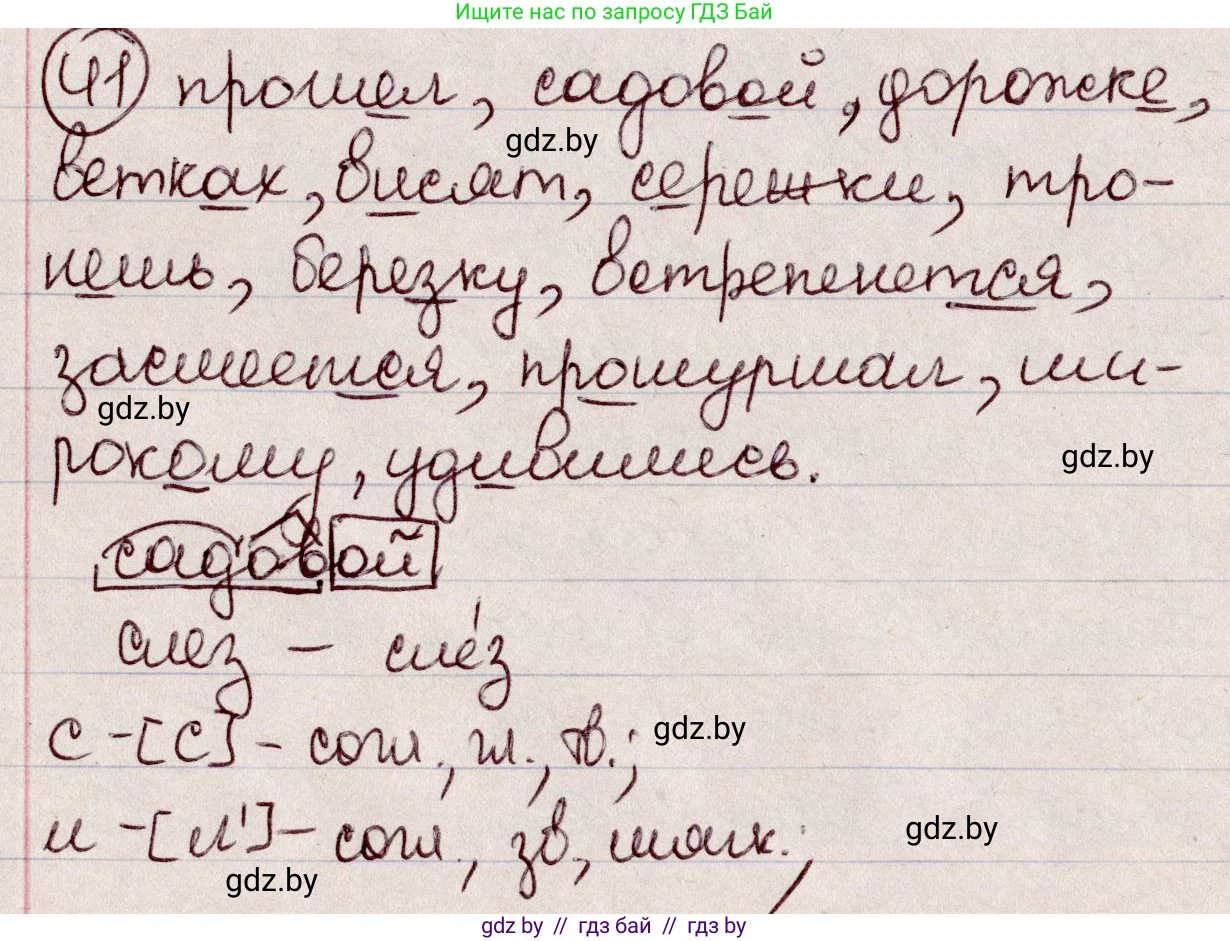 Ищите нас по запросу ГДЗ Бай
41 прошел, садовой, дорожке,
gdz.by
ветках, висят, сережки, тро-
нешь, березку, встрепенется,
засмеется, прошуршал, ши-
gdz.by
рокому, удивились.
gdz.by
садовой
слез – сле́з
с -[с] - согл., гл., тв.;
gdz.by
л -[л'] - согл., зв., мягк.;
gdz.by
gdz.by
gdz.by // гдз бай // гдз by